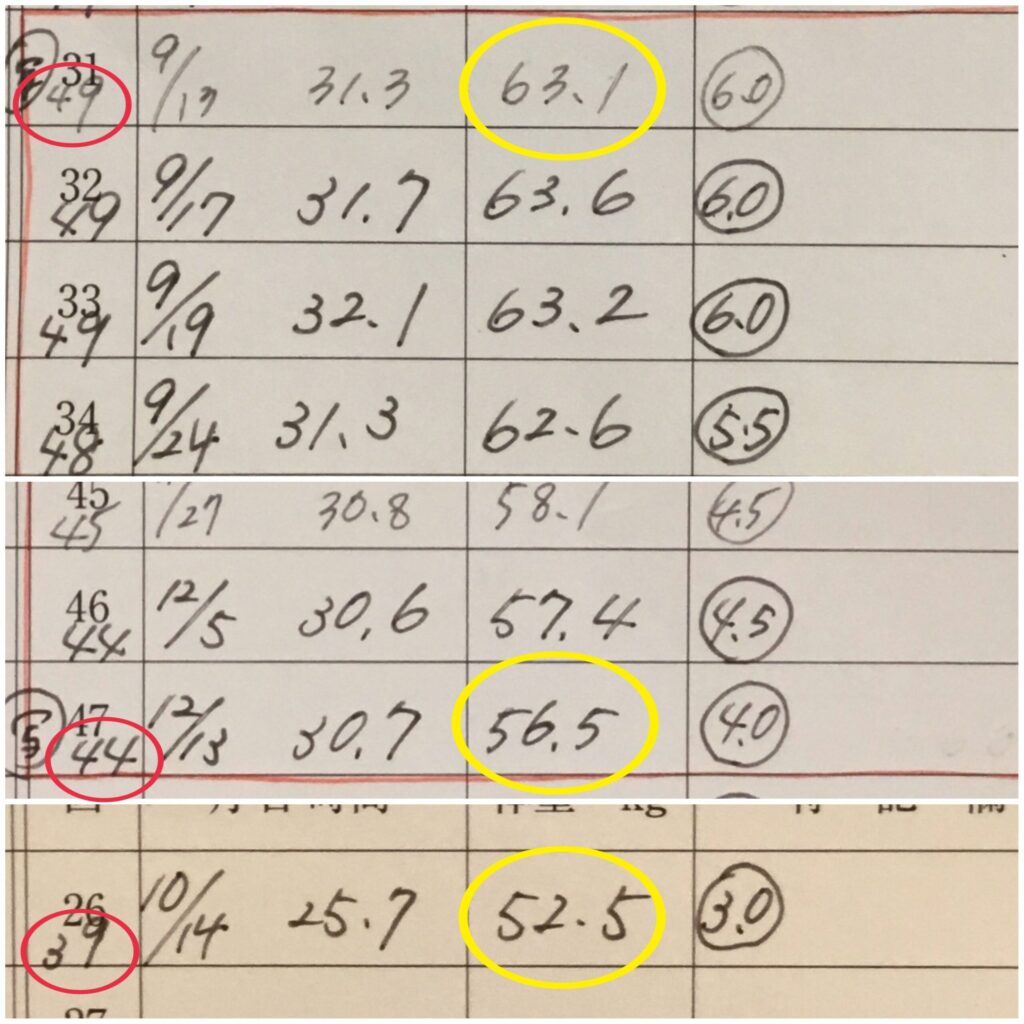 31 9/13 31.3 63.1 6.0
49
32 9/17 31.7 63.6 6.0
49
33 9/19 32.1 63.2 6.0
49
34 9/24 31.3 62.6 5.5
48
45 /27 30.8 58.1 4.5
45
46 12/5 30.6 57.4 4.5
44
47 12/13 30.7 56.5 4.0
44
kg
26 10/14 25.7 52.5 3.0
39
27